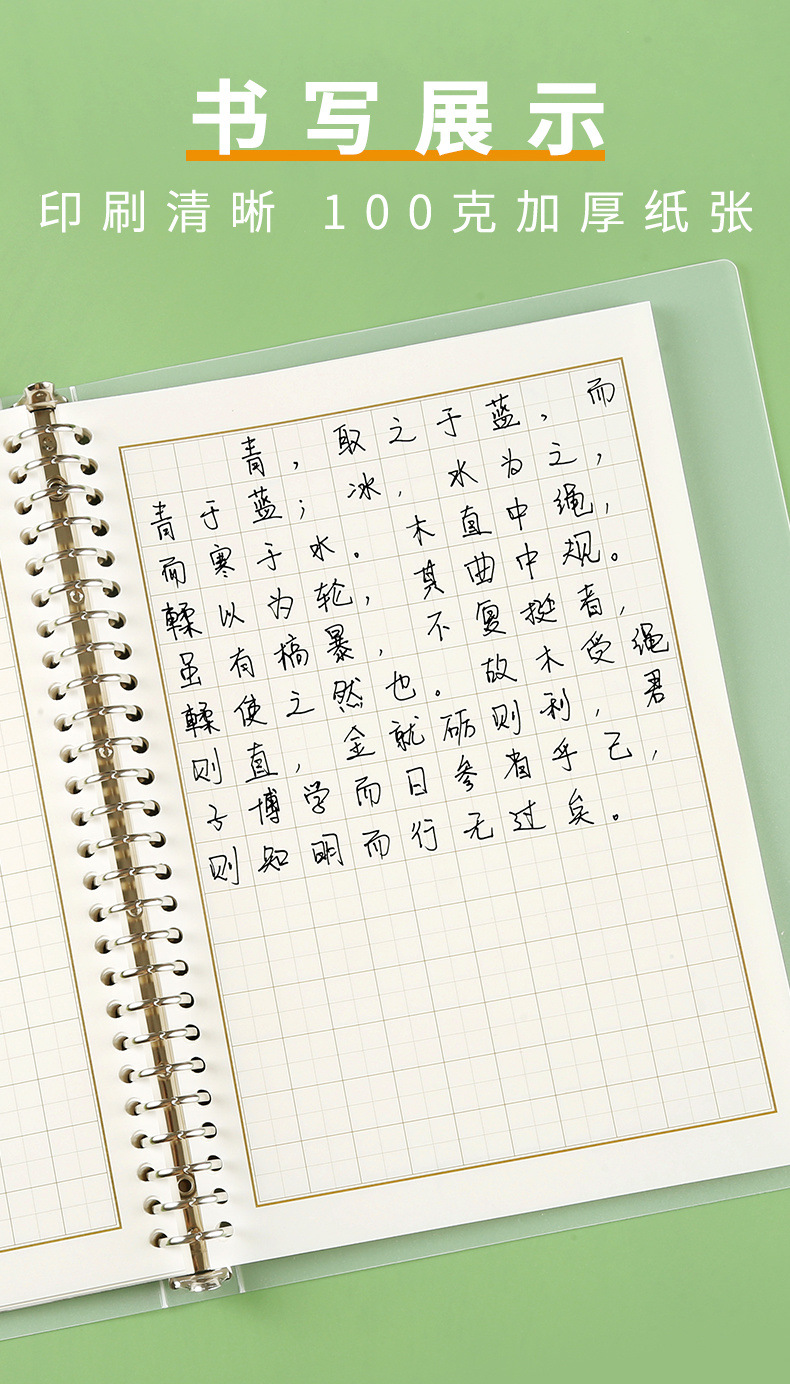 书写展示
印刷清晰 100克加厚纸张
青，取之于蓝，而
青于蓝；冰，水为之，
而寒于水。木直中绳，
輮以为轮，其曲中规。
虽有槁暴，不复挺者，
輮使之然也。故木受绳
则直，金就砺则利，君
子博学而日参省乎己，
则知明而行无过矣。